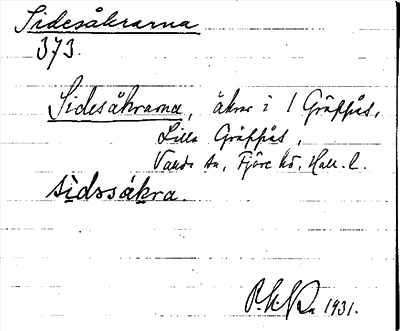 Sidesåkrarna
373.
Sidesåkrarna, åkrar i 1 Gräppås,
Lilla Gräppås,
Vallda sn, Fjäre hd, Hall. l.
sidəsåkra.
1931.